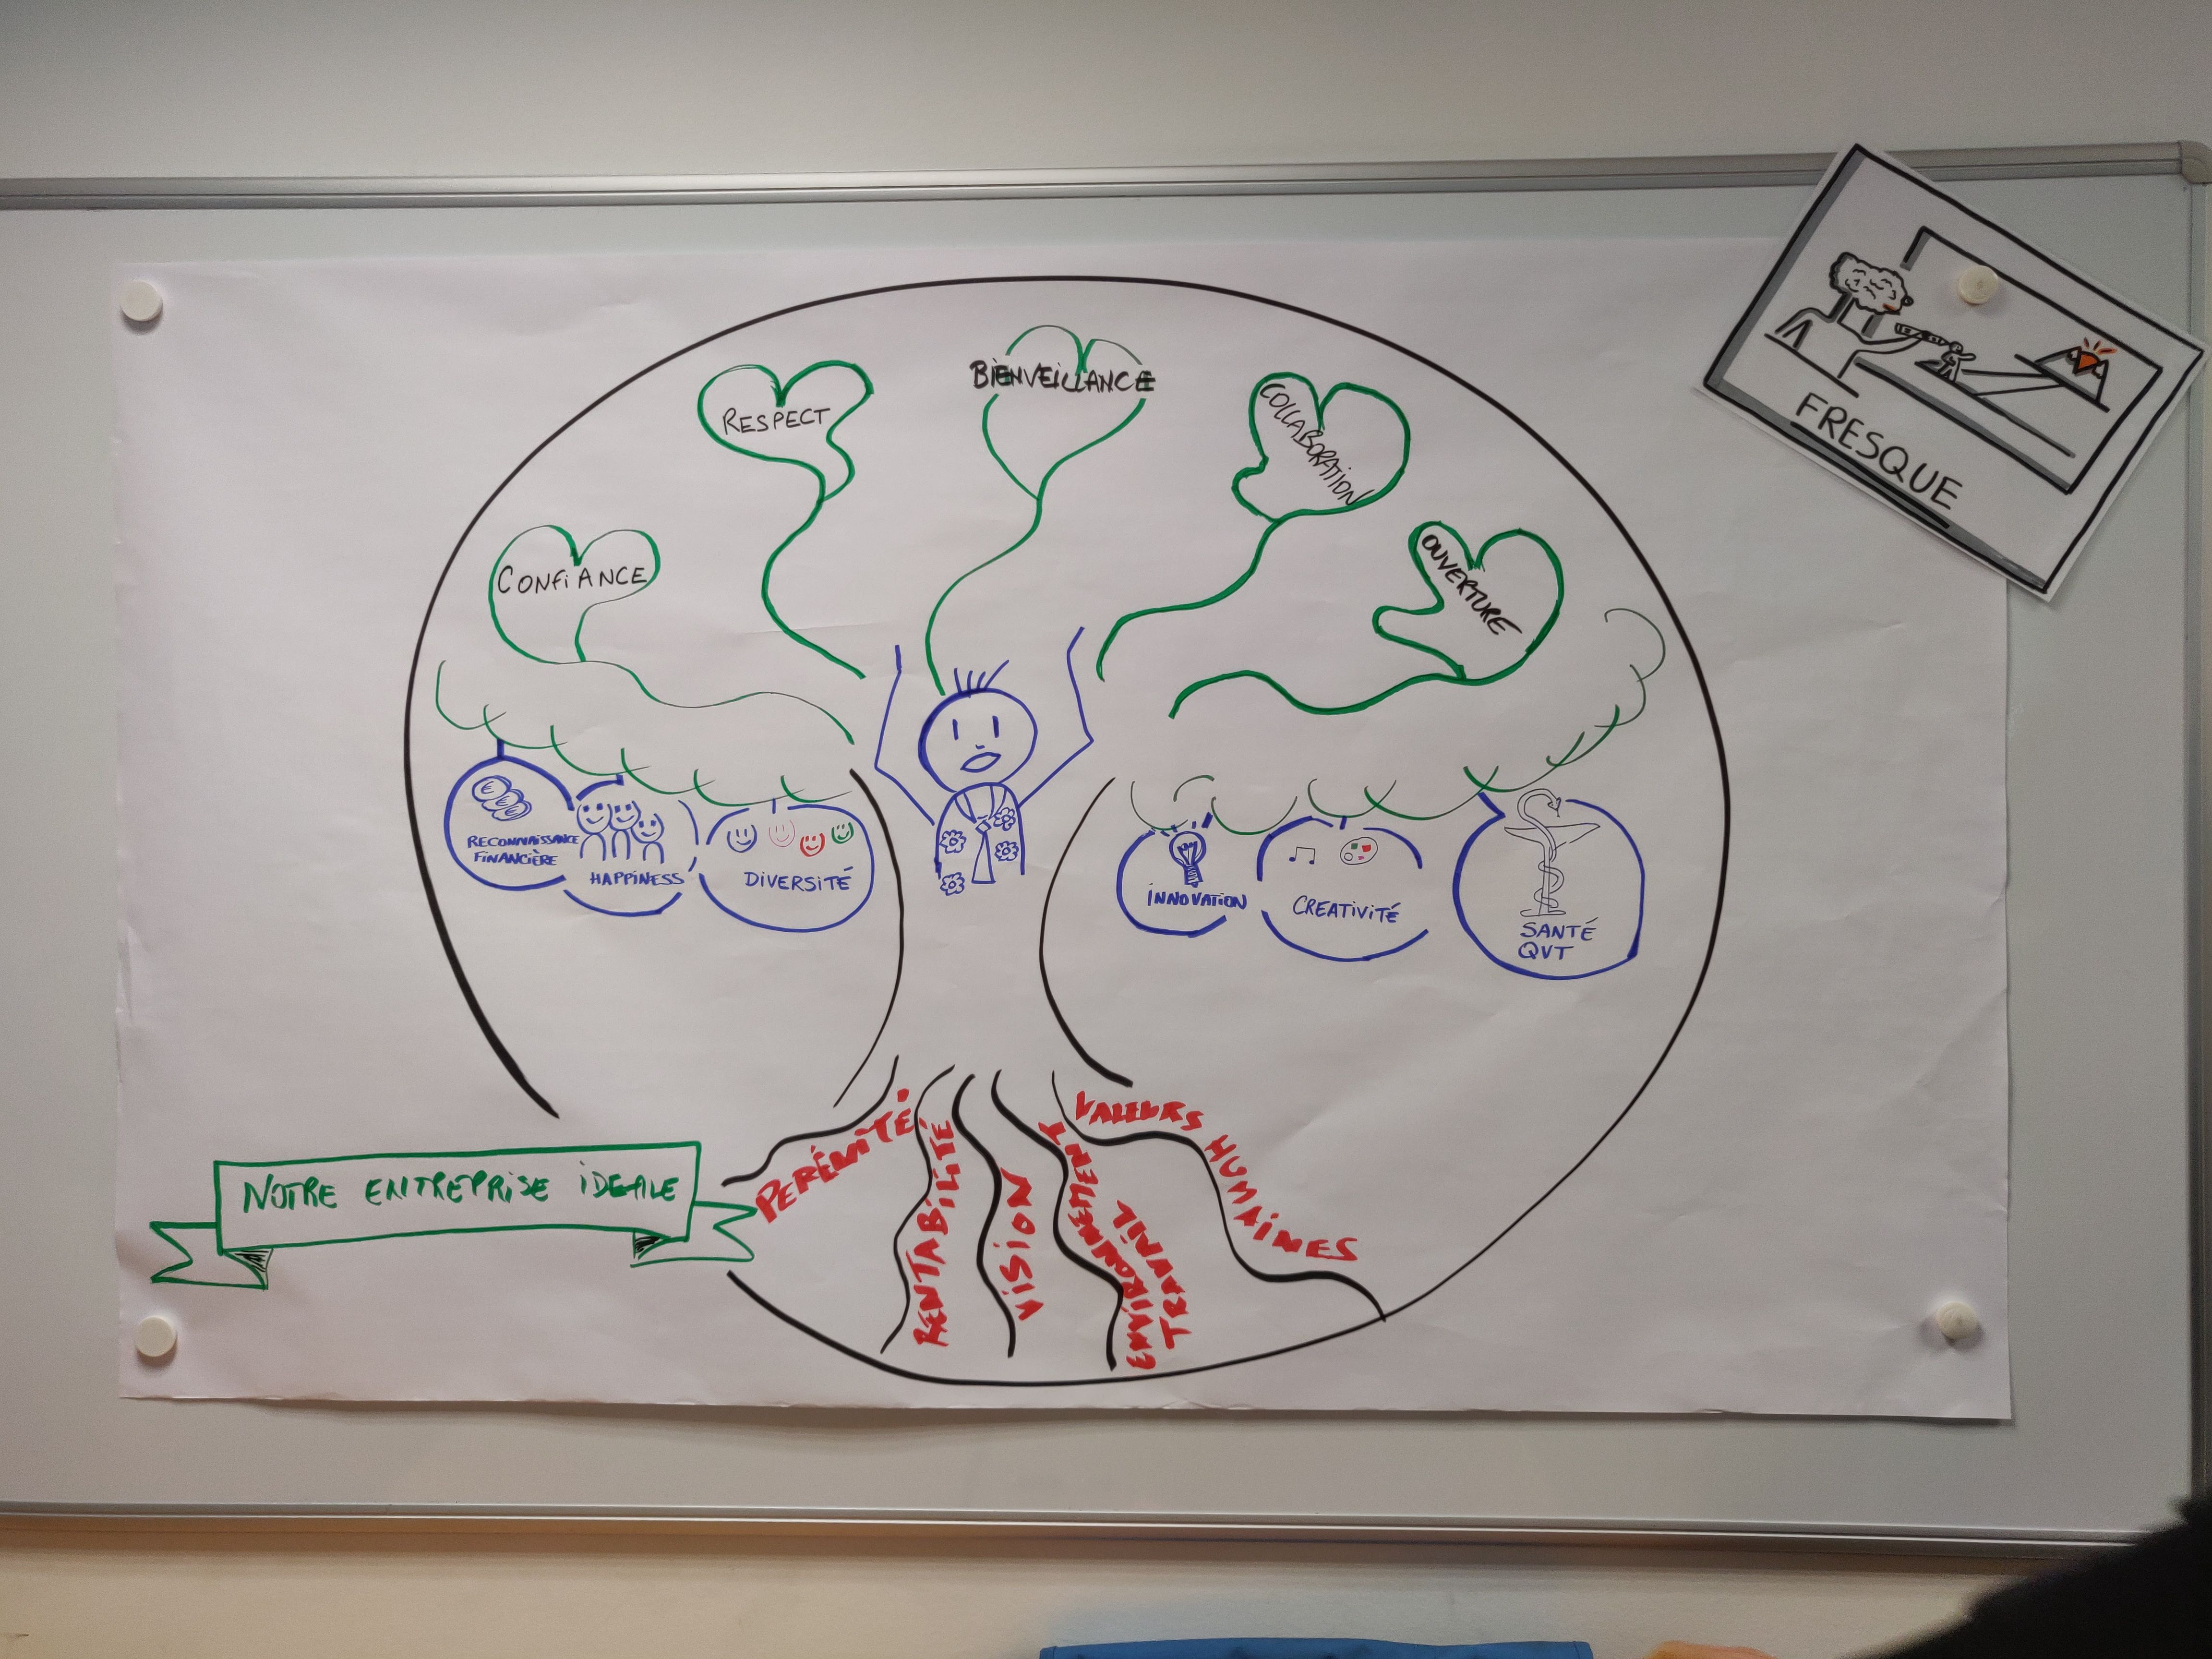 FRESQUE
BIENVEILLANCE
RESPECT
COLLABORATION
CONFIANCE
OUVERTURE
RECONNAISSANCE
FINANCIÈRE
HAPPINESS
DIVERSITÉ
INNOVATION
CREATIVITÉ
SANTÉ
QVT
NOTRE ENTREPRISE IDEALE
PERÉNITÉ
RENTABILITÉ
VISION
ENVIRONNEMENT
TRAVAIL
VALEURS HUMAINES